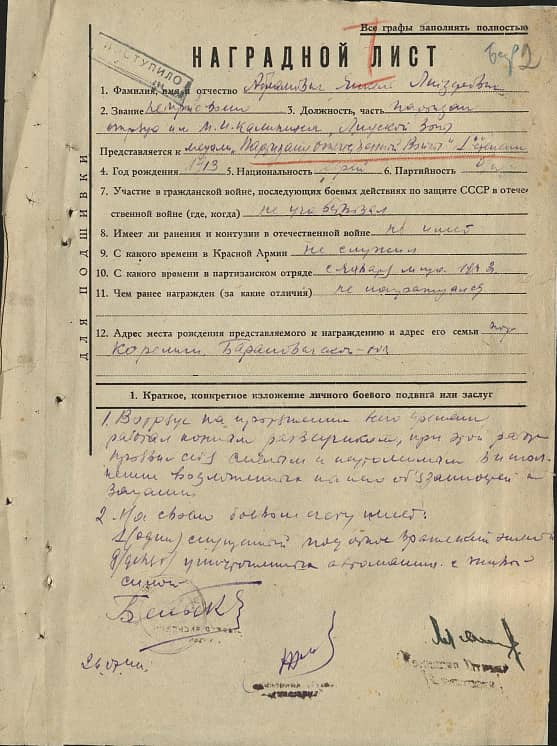 Все графы заполнять полностью
ПОСТУПИЛО
НАГРАДНОЙ ЛИСТ
1. Фамилия, имя и отчество Абрамович
2. Звание 3. Должность, часть партизан
отряда им. М.И. Калинина, Лидской зоны
Представляется к медали „Партизану отечественной Войны" степени
4. Год рождения 1913 5. Национальность еврей 6. Партийность
7. Участие в гражданской войне, последующих боевых действиях по защите СССР в отече-
ственной войне (где, когда) не участвовал
8. Имеет ли ранения и контузии в отечественной войне не имеет
9. С какого времени в Красной Армии не служил
10. С какого времени в партизанском отряде с января м-ца
11. Чем ранее награжден (за какие отличия) не награждался
12. Адрес места рождения представляемого к награждению и адрес его семьи
Кореличи Барановичской обл
ДЛЯ ПОДШИВКИ
1. Краткое, конкретное изложение личного боевого подвига или заслуг
1. В отряде на протяжении всего времени
работал конным разведчиком, при этой
проявил себя смелым и в выпол-
нении возложенных на него обязанностей и
заданий
2. На своем боевом счету имеет:
1 (один) спущенный под откос вражеский эшелон
уничтоженных автомашин с живой
силой